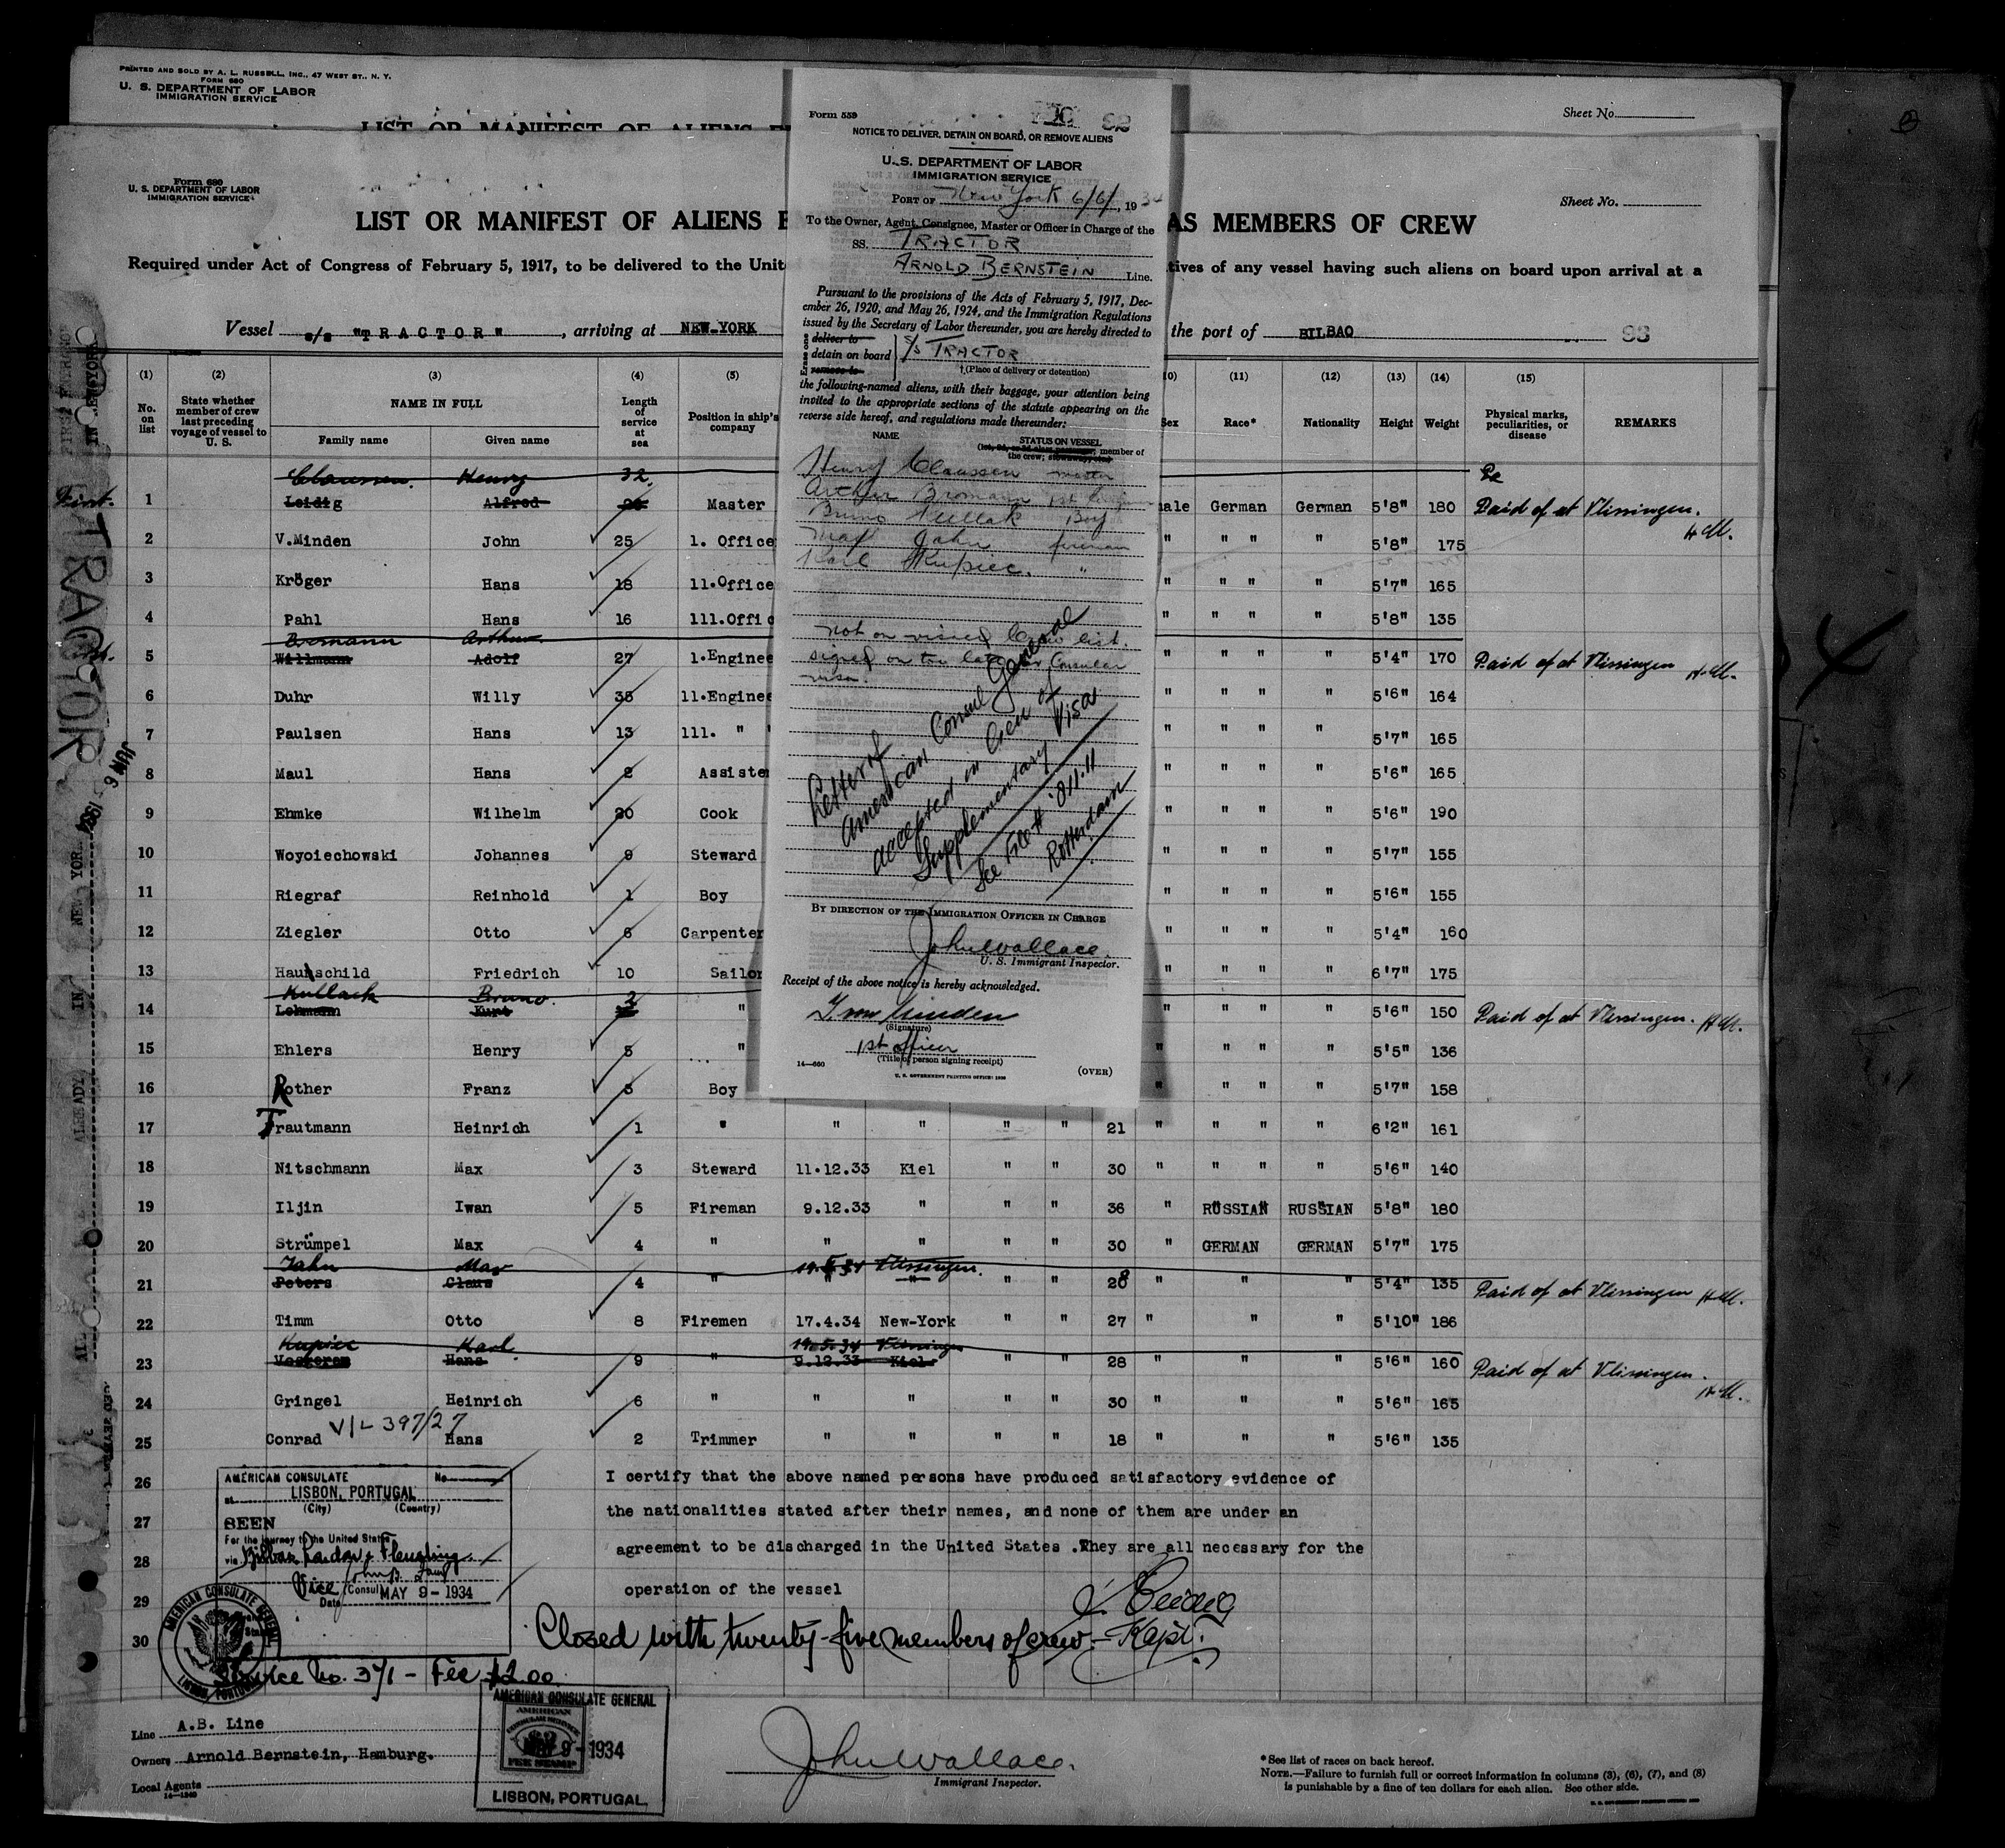 PRINTED AND SOLD BY A. L. RUSSELL, INC., 47 WEST ST., N. Y.
FORM 680
U. S. DEPARTMENT OF LABOR
IMMIGRATION SERVICE
Sheet No.
LIST OR MANIFEST OF ALIENS
Form 680
U. S. DEPARTMENT OF LABOR
IMMIGRATION SERVICE
Sheet No.
LIST OR MANIFEST OF ALIENS E AS MEMBERS OF CREW
Required under Act of Congress of February 5, 1917, to be delivered to the Unit tives of any vessel having such aliens on board upon arrival at a
Vessel s/s "TRACTOR", arriving at NEW-YORK the port of BILBAO 93
Form 559
NOTICE TO DELIVER, DETAIN ON BOARD, OR REMOVE ALIENS
U. S. DEPARTMENT OF LABOR
IMMIGRATION SERVICE
PORT OF New York 6/6/, 1934
To the Owner, Agent, Consignee, Master or Officer in Charge of the
SS. TRACTOR
ARNOLD BERNSTEIN Line.
Pursuant to the provisions of the Acts of February 5, 1917, Dec-
ember 26, 1920, and May 26, 1924, and the Immigration Regulations
issued by the Secretary of Labor thereunder, you are hereby directed to
deliver to
detain on board S/S TRACTOR
remove to
(Place of delivery or detention)
the following-named aliens, with their baggage, your attention being
invited to the appropriate sections of the statute appearing on the
reverse side hereof, and regulations made thereunder:
NAME STATUS ON VESSEL
member of
the crew;
Henry Claussen master
Arthur Bromann 1st
Bruno Kullak Boy
Max Jahn fireman
Karl Kupiec. "
not on visaed Crew list.
signed on too late for Consular
visa.
Letter of
American Consul General
accepted in lieu of
Supplementary Visa
See File # 811.11
Rotterdam
BY DIRECTION OF THE IMMIGRATION OFFICER IN CHARGE
John Wallace
U. S. Immigrant Inspector.
Receipt of the above notice is hereby acknowledged.
J. von Minden
(Signature)
1st officer
(Title of person signing receipt)
14—660
U. S. GOVERNMENT PRINTING OFFICE:
(OVER)
(1) (2) (3) (4) (5) (11) (12) (13) (14) (15)
No. on list State whether member of crew last preceding voyage of vessel to U. S. NAME IN FULL Length of service at sea Position in ship's company Sex Race* Nationality Height Weight Physical marks, peculiarities, or disease REMARKS
Family name Given name
Claussen. Henry 32.
1 Leidig Alfred Master male German German 5'8" 180 Paid of at Vlissingen.
2 V.Minden John 25 l. Office " " " " 5'8" 175
3 Kröger Hans 18 ll.Office " " " " 5'7" 165
4 Pahl Hans 16 lll.Offic " " " " 5'8" 135
Bromann Arthur
5 Willmann Adolf 27 l.Enginee " " " " 5'4" 170 Paid of at Vlissingen
6 Duhr Willy 35 ll.Enginee " " " " 5'6" 164
7 Paulsen Hans 13 lll. " " " " " 5'7" 165
8 Maul Hans 2 Assiste " " " " 5'6" 165
9 Ehmke Wilhelm 20 Cook " " " " 5'6" 190
10 Woyoiechowski Johannes 9 Steward " " " " 5'7" 155
11 Riegraf Reinhold 1 Boy " " " " 5'6" 155
12 Ziegler Otto 6 Carpenter " " " " 5'4" 160
13 Hauschild Friedrich 10 Sailor " " " " 6'7" 175
Kullack Bruno. 2
14 Lehmann Kurt " " " " " 5'6" 150 Paid of at Vlissingen.
15 Ehlers Henry 5 " " " " " 5'5" 136
16 Rother Franz 5 Boy " " " " 5'7" 158
17 Trautmann Heinrich 1 " " " " " 21 " " " " 6'2" 161
18 Nitschmann Max 3 Steward 11.12.33 Kiel " " 30 " " " " 5'6" 140
19 Iljin Iwan 5 Fireman 9.12.33 " " " 36 " RUSSIAN RUSSIAN 5'8" 180
20 Strümpel Max 4 " " " " " 30 " GERMAN GERMAN 5'7" 175
Jahn Max Vlissingen.
21 Peters Claus 4 " " " " " 28 " " " 5'4" 135 Paid of at Vlissingen
22 Timm Otto 8 Firemen 17.4.34 New-York " " 27 " " " 5'10" 186
Kupiec Karl. 19.5.34 Vlissingen
23 Hans 9 " 9.12.33 Kiel " " 28 " " " 5'6" 160 Paid of at Vlissingen.
24 Gringel Heinrich 6 " " " " " 30 " " " 5'6" 165
V/L 397/27
25 Conrad Hans 2 Trimmer " " " " 18 " " " 5'6" 135
26 I certify that the above named persons have produced satisfactory evidence of
27 the nationalities stated after their names, and none of them are under an
28 agreement to be discharged in the United States .They are all necessary for the
29 operation of the vessel
30 Closed with twenty-five members of crew.— Kapt.
AMERICAN CONSULATE No.
at LISBON, PORTUGAL
(City) (Country)
SEEN
For the journey to the United States
via Bilbao
Vice Consul
Date MAY 9-1934
AMERICAN CONSULATE GENERAL
LISBON, PORTUGAL
Service No. 371 - Fee $2.00
AMERICAN CONSULATE GENERAL
AMERICAN
CONSULAR SERVICE
$2
FEE STAMP
9-1934
LISBON, PORTUGAL
Line A.B. Line
Owners Arnold Bernstein, Hamburg.
Local Agents
John Wallace.
Immigrant Inspector.
*See list of races on back hereof.
NOTE.—Failure to furnish full or correct information in columns (3), (6), (7), and (8)
is punishable by a fine of ten dollars for each alien. See other side.
TRACTOR